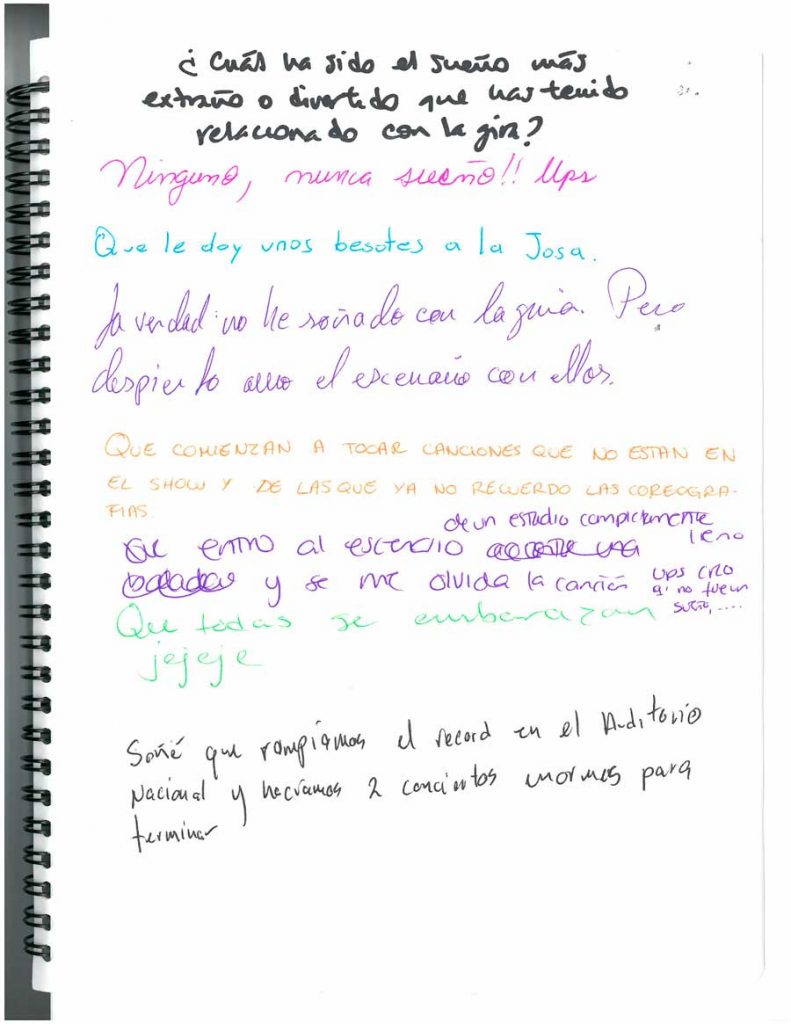 ¿Cuál ha sido el sueño más
extraño o divertido que has tenido
relacionado con la gira?
Ninguno, nunca sueño!! Ups
Que le doy unos besotes a la Josa.
La verdad no he soñado con la guia. Pero
despierto amo el escenario con ellos.
QUE COMIENZAN A TOCAR CANCIONES QUE NO ESTAN EN
EL SHOW Y DE LAS QUE YA NO RECUERDO LAS COREOGRA-
FIAS.
de un estudio completamente
leno
que entro al escenario
y se me olvida la canción
ups creo
q' no fue un
sueño,....
Que todas se embarazan
jejeje
Soñé que rompíamos el record en el Auditorio
Nacional y hacíamos 2 conciertos enormes para
terminar